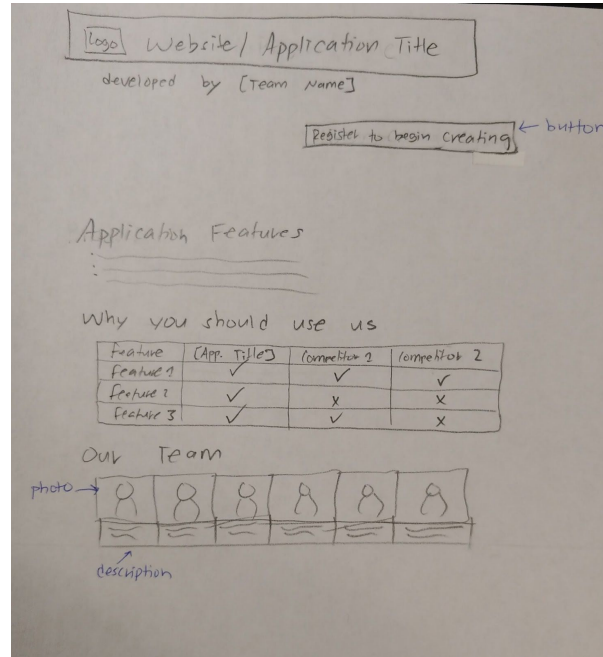 Logo Website/ Application Title
developed by [Team Name]
Register to begin creating
← button
Application Features
Why you should use us
Feature [App. Title] Competitor 1 Competitor 2
Feature 1 ✓ ✓ ✓
Feature 2 ✓ x x
Feature 3 ✓ ✓ x
Our Team
photo →
description